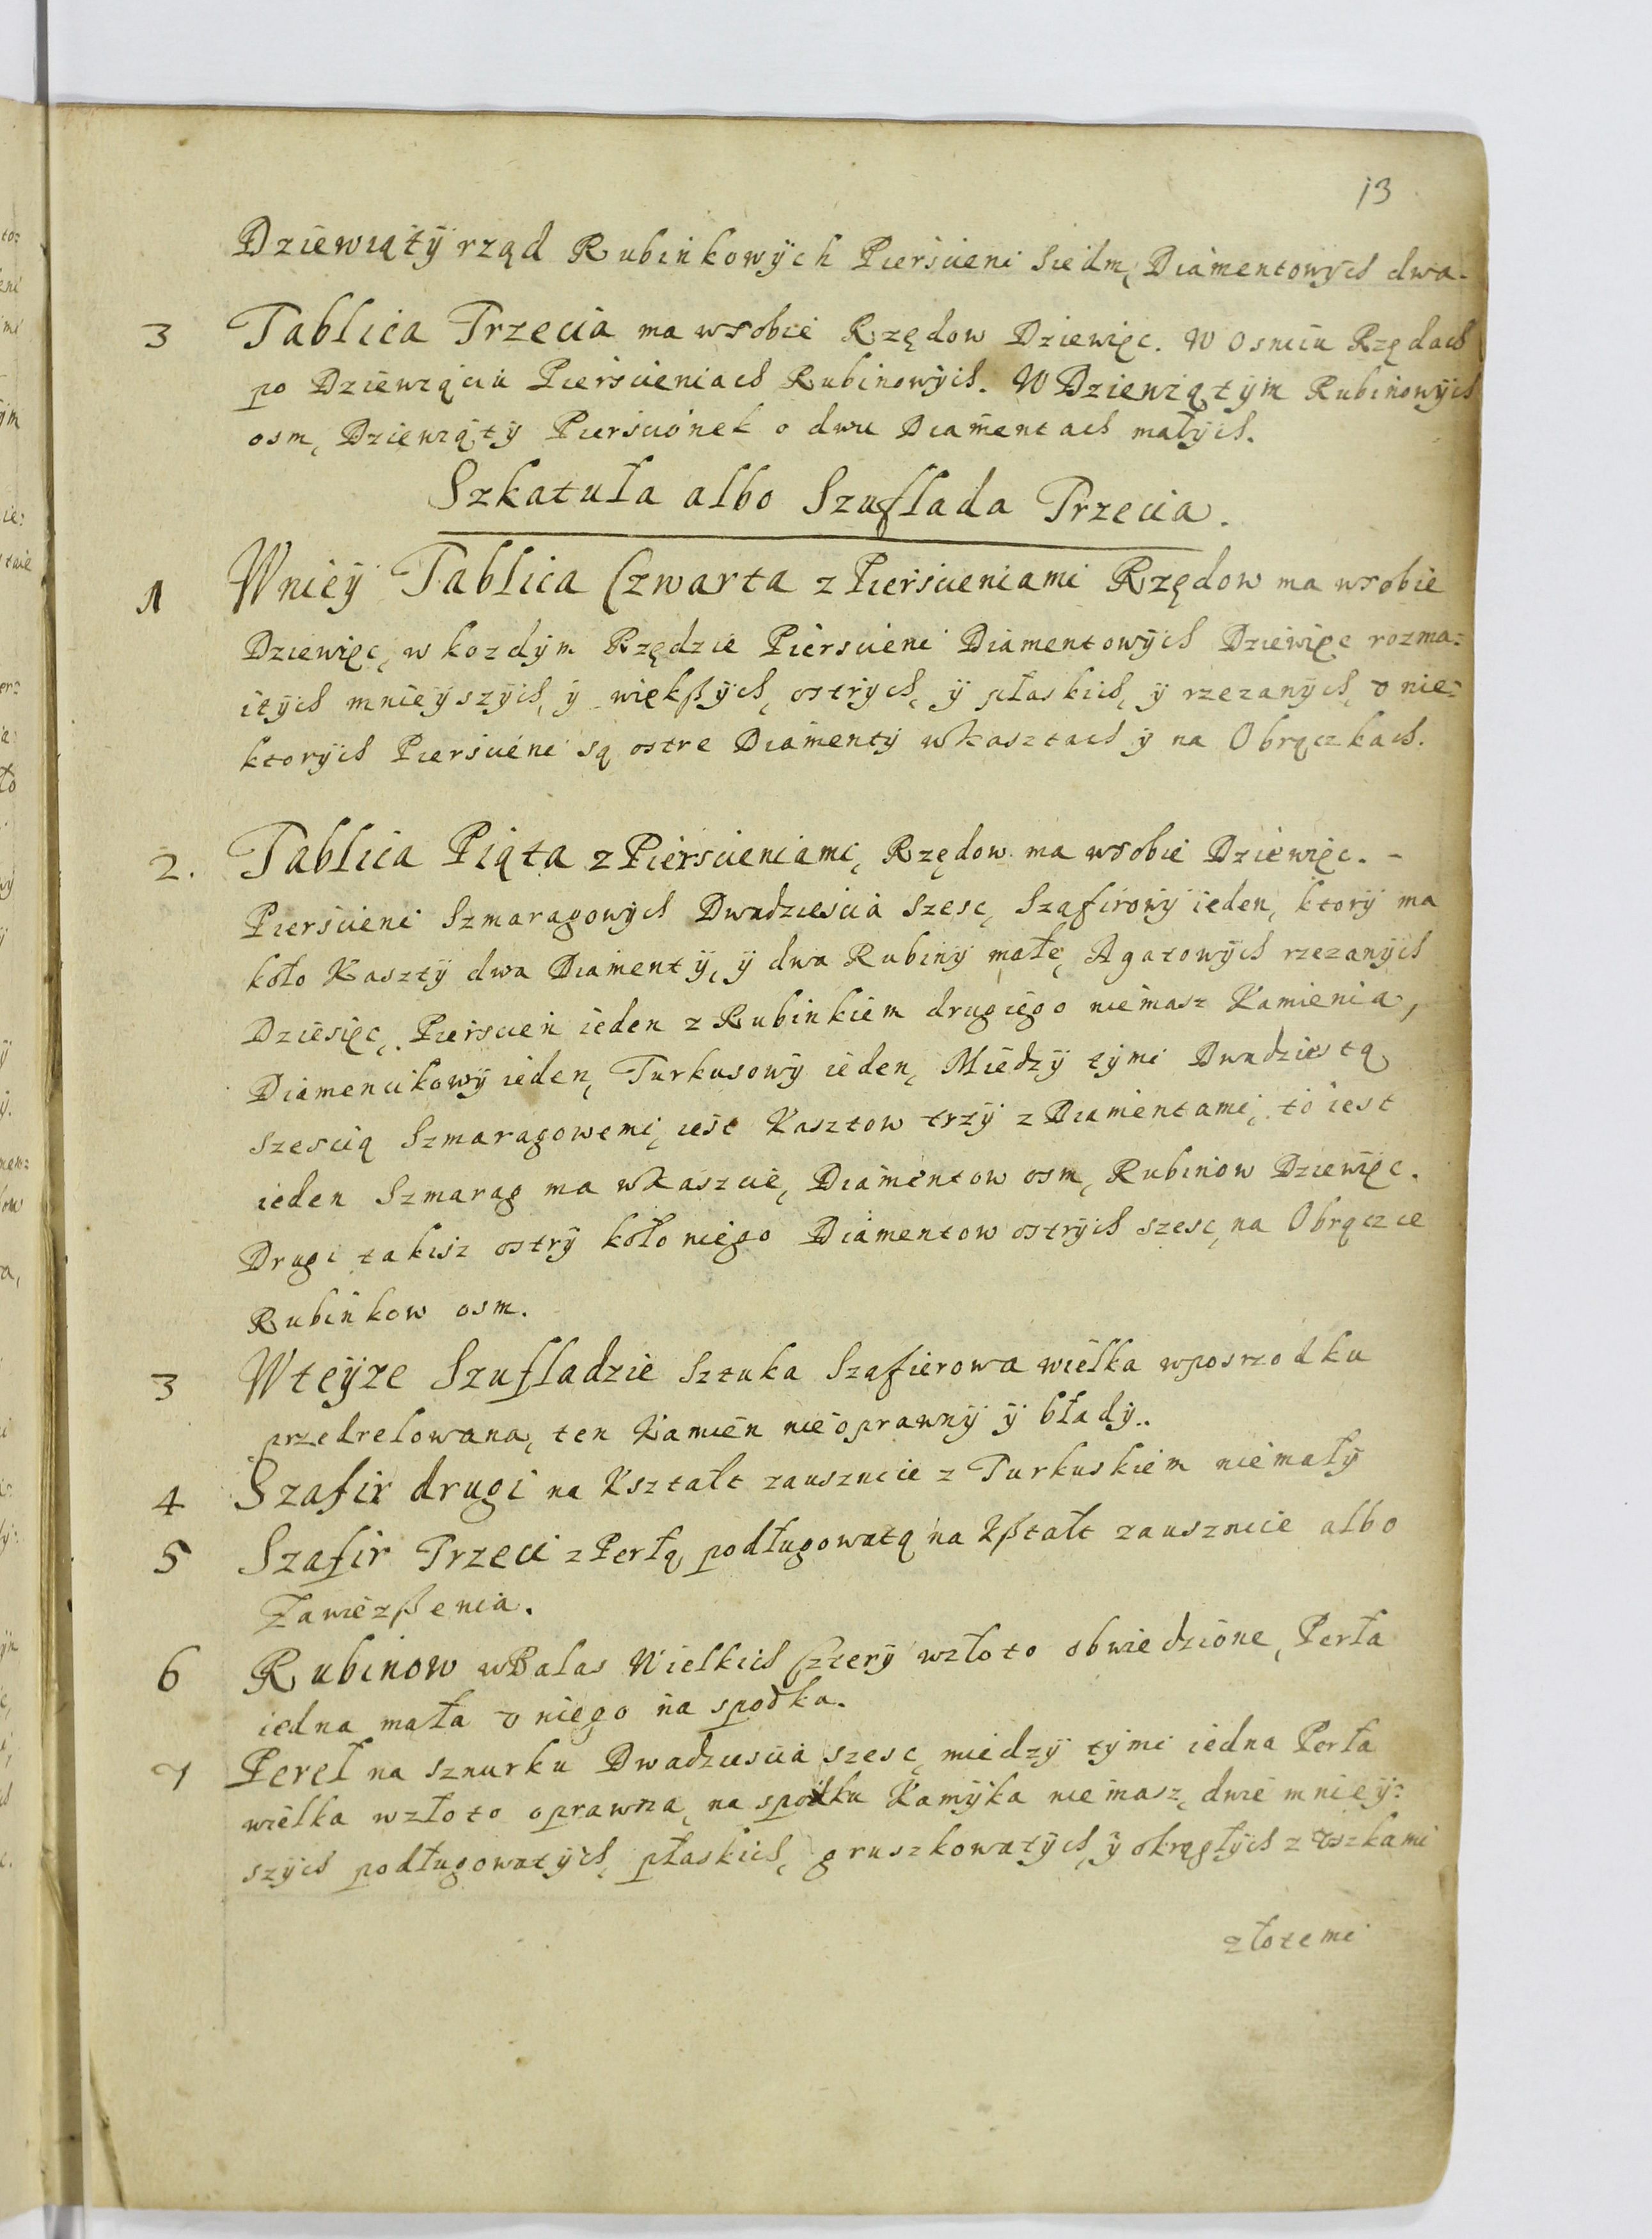 13
Dziewiąty rząd Rubinkowych Pierscieni Siedm, Diamentowych dwa.
3 Tablica Trzecia ma wsobie Rzędow Dziewięc. W Osmiu Rzędach
po Dziewiąciu Pierscieniach Rubinowych. W Dziewiątym Rubinowych
osm, Dziewiąty Pierscionek o dwu Diamentach małych.
Szkatuła albo Szuflada Trzecia.
1 Wniey Tablica Czwarta z Pierscieniami Rzędow ma wsobie
Dziewięc, w kozdym Rzędzie Pierscieni Diamentowych Dziewięc rozma=
itych mnieyszych, y więkßych, ostrych, y płaskich, y rzezanych, v nie=
ktorych Pierscieni są ostre Diamenty wkasztach y na Obrączkach.
2. Tablica Piąta z Pierscieniami, Rzędow ma wsobie Dziewięc. -
Pierscieni Szmaragowych Dwadziescia Szesc, Szafirowy ieden, ktory ma
koło Kaszty dwa Diamenty, y dwa Rubiny małe, Agatowych rzezanych
Dziesięc, Pierscien ieden z Rubinkiem drugiego niemasz Kamienia,
Diamencikowy ieden, Turkusowy ieden, Miedzy tymi Dwudziestą
Szescią Szmaragowemi, iest Kasztow trzy z Diamentami, to iest
ieden Szmarag ma wkaszcie, Diamentow osm, Rubinow Dziewięc.
Drugi takisz ostry koło niego Diamentow ostrych szesc, na Obrączce
Rubinkow osm.
3 Wteyze Szufladzie Sztuka Szafierowa wielka wposrzodku
przedrelowana, ten Kamien nieoprawny y blady.
4 Szafir drugi na Kształt zausznicie z Turkuskiem niemały
5 Szafir Trzeci z Perłą podługowatą na Kßtałt zausznicie albo
Zawiezßenia.
6 Rubinow wBalas Wielkich Cztery wzłoto obwiedzione, Perła
iedna mała v niego na spodku.
7 Pereł na sznurku Dwadziescia szesc, miedzy tymi iedna Perła
wielka wzłoto oprawna, na spodku Kamyka niemasz, dwie mniey=
szych podługowatych, płaskich, gruszkowatych, y okrągłych z vszkami
złotemi